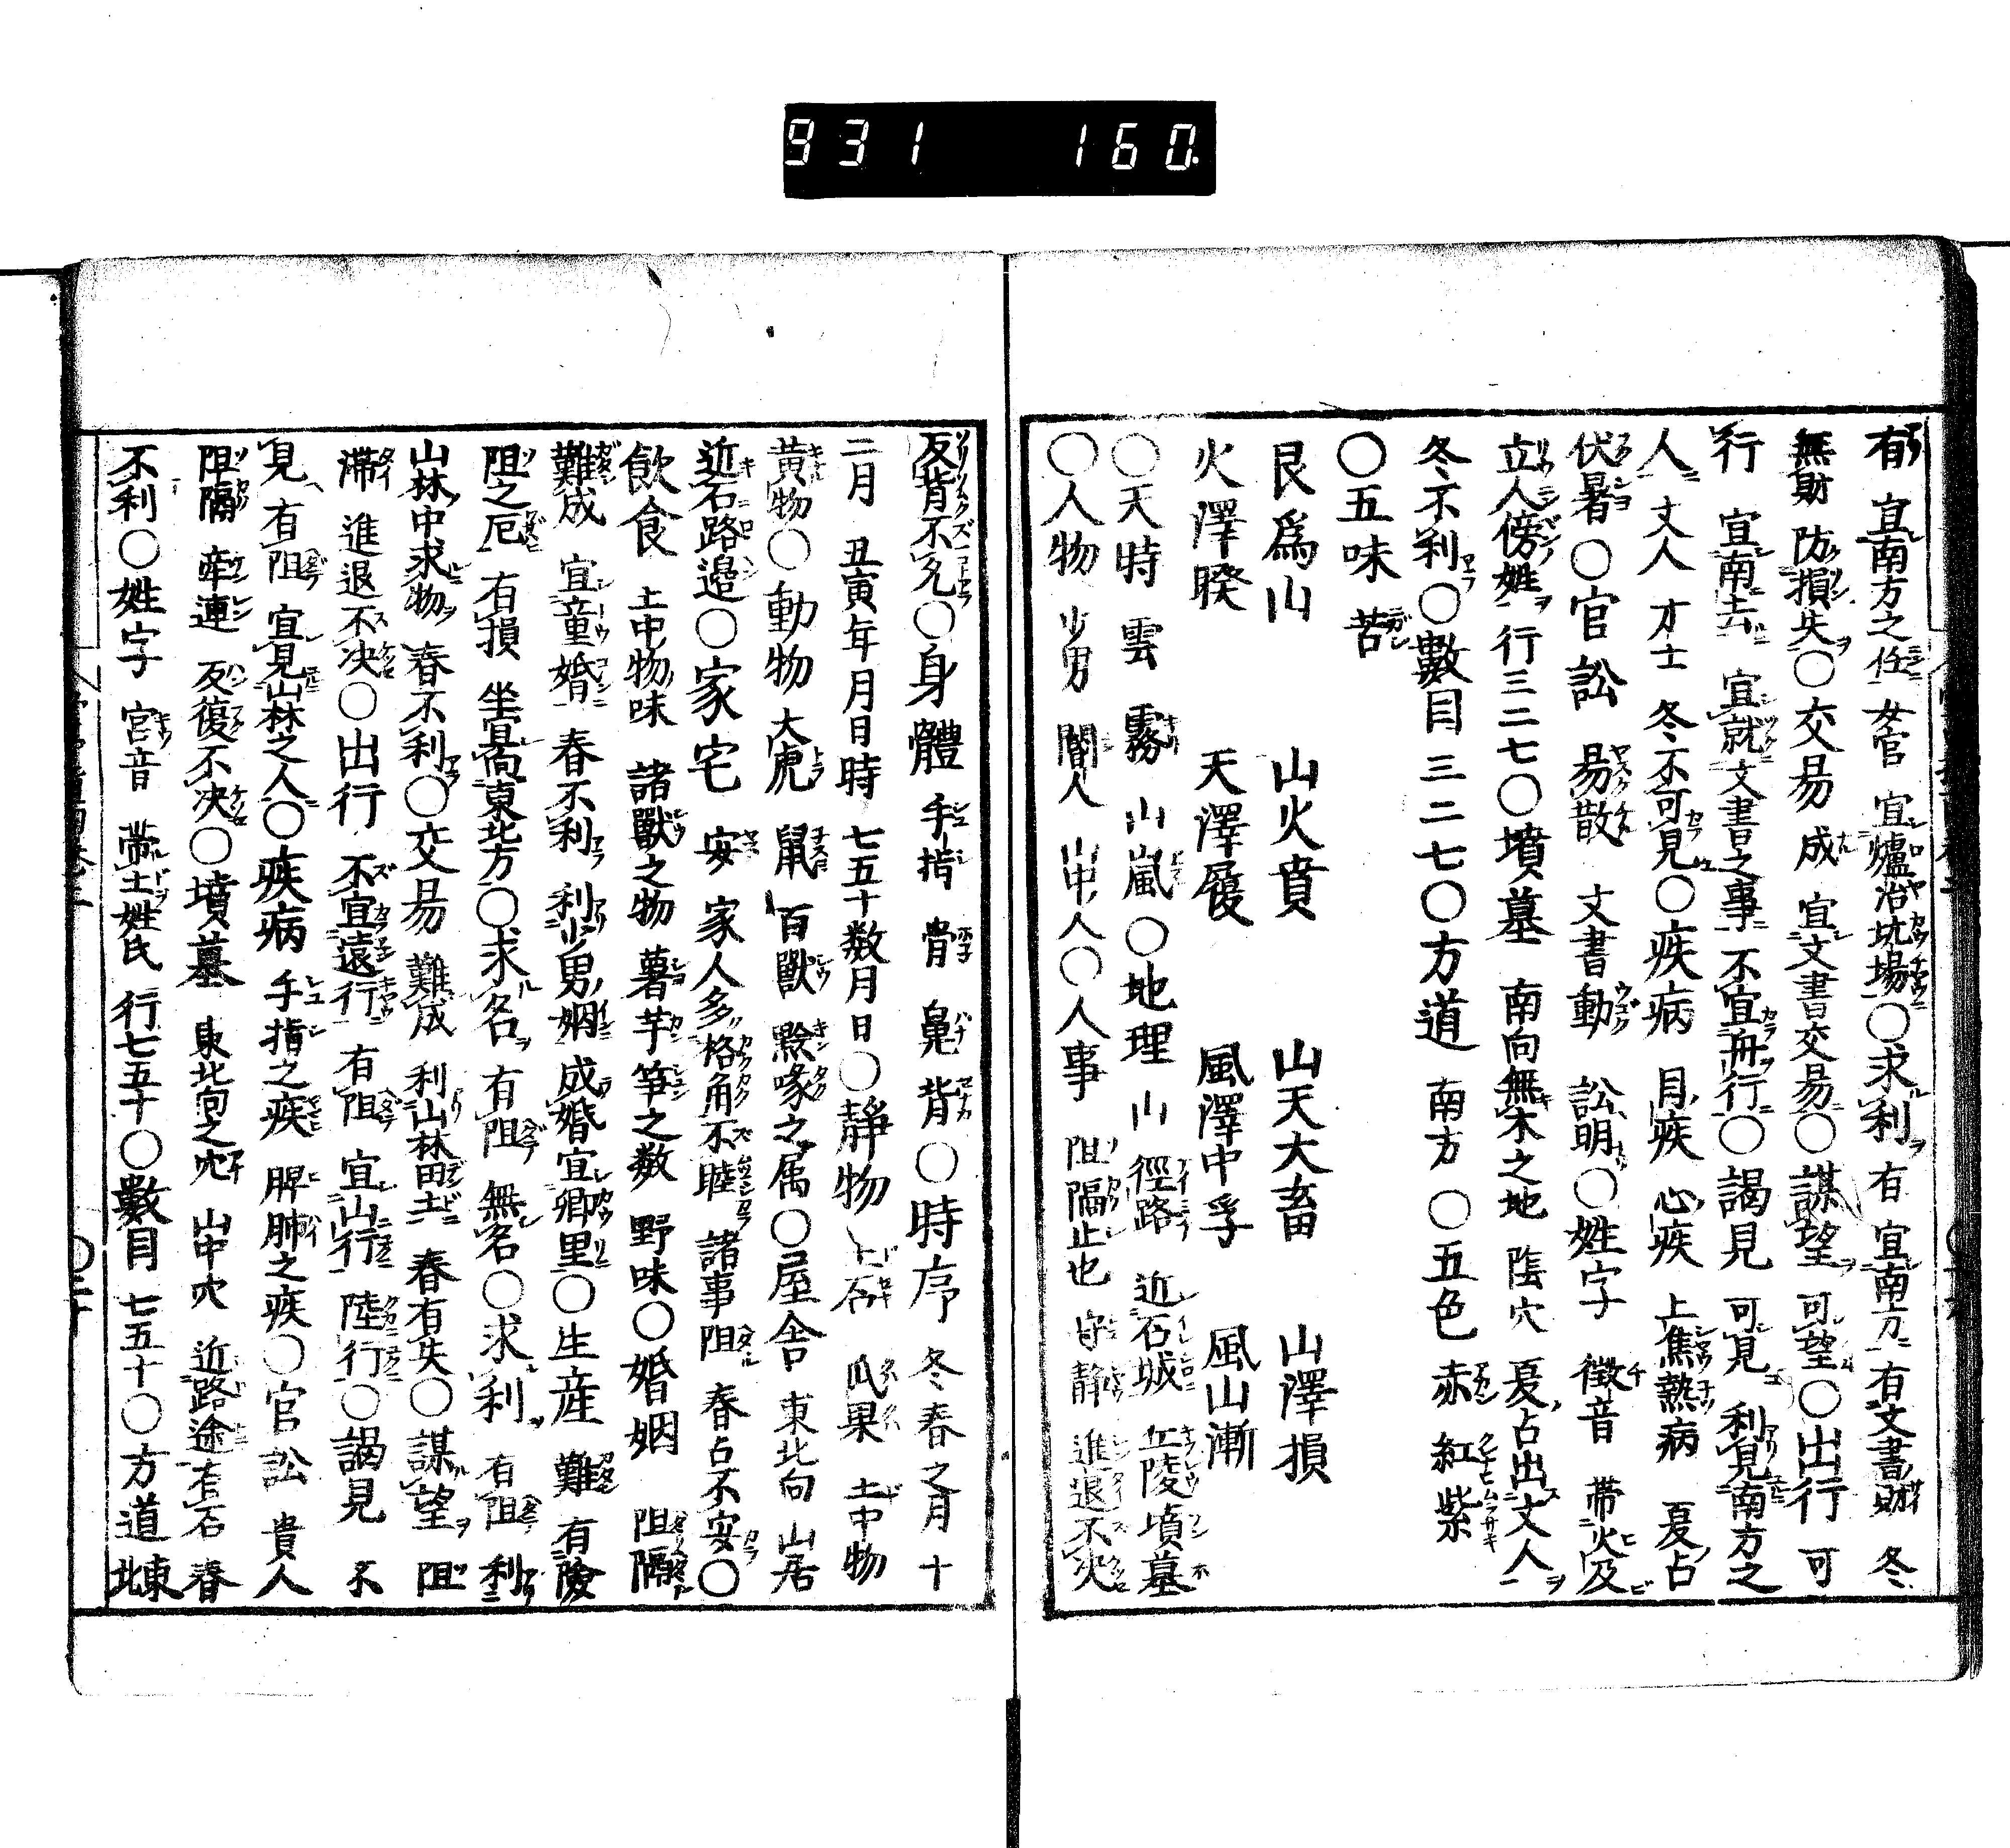 931 160
有 宜南方之任 女官 宜爐冶坑場〇求利 有 宜南方 有文書財 冬
無財 防損失〇交易 成 宜文書交易〇謀望 可望〇出行 可
行 宜南去 宜就文書之事 不宜舟行〇謁見 可見 利見南方之
人 文人 才士 冬不可見〇疾病 目疾 心疾 上焦熱病 夏占
伏暑〇官訟 易散 文書動 訟明〇姓字 徵音 帶火及
立人傍姓 行三二七〇墳墓 南向無木之地 陰穴 夏占出文人
冬不利〇數目 三二七〇方道 南方 〇五色 赤 紅 紫
〇五味 苦
艮爲山 山火賁 山天大畜 山澤損
火澤睽 天澤履 風澤中孚 風山漸
〇天時 雲 霧 山嵐〇地理 山 徑路 近石城 丘陵墳墓
〇人物 少男 閽人 山中人〇人事 阻隔止也 守靜 進退不决
反背不見〇身體 手指 骨 鼻 背〇時序 冬春之月 十
二月 丑寅年月日時 七五十数月日〇靜物 土石 瓜果 土中物
黄物〇動物 大虎 鼠 百獸 黔喙之屬〇屋舍 東北向 山居
近石路邊〇家宅 安 家人多格角不睦 諸事阻 春占不安〇
飲食 土中物味 諸獸之物 薯芋笋之数 野味〇婚姻 阻隔
難成 宜童婚 春不利 利少男姻 成婚宜郷里〇生産 難 有險
阻之厄 有損 坐宜髙東北方〇求名 有阻 無名〇求利 有阻 利
山林中求物 春不利〇交易 難成 利山林田土 春有失〇謀望 阻
滯 進退不决〇出行 不宜遠行 有阻 宜山行 陸行〇謁見 不
見 有阻 宜見山林之人〇疾病 手指之疾 脾肺之疾〇官訟 貴人
阻隔 牽連 反復不决〇墳墓 東北向之穴 山中穴 近路途有石 春
不利〇姓字 宮音 帶土姓氏 行七五十〇數目 七五十〇方道 東北